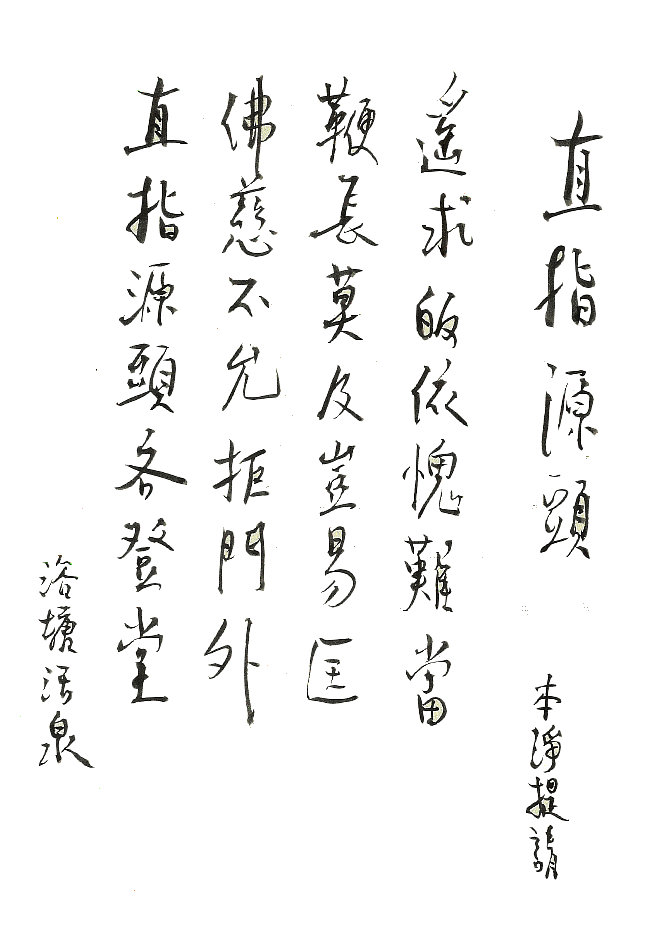 直指源頭
本淨提請
遙求皈依愧難當
鞭長莫及豈易匡
佛慈不允拒門外
直指源頭各登堂
浴塘活泉